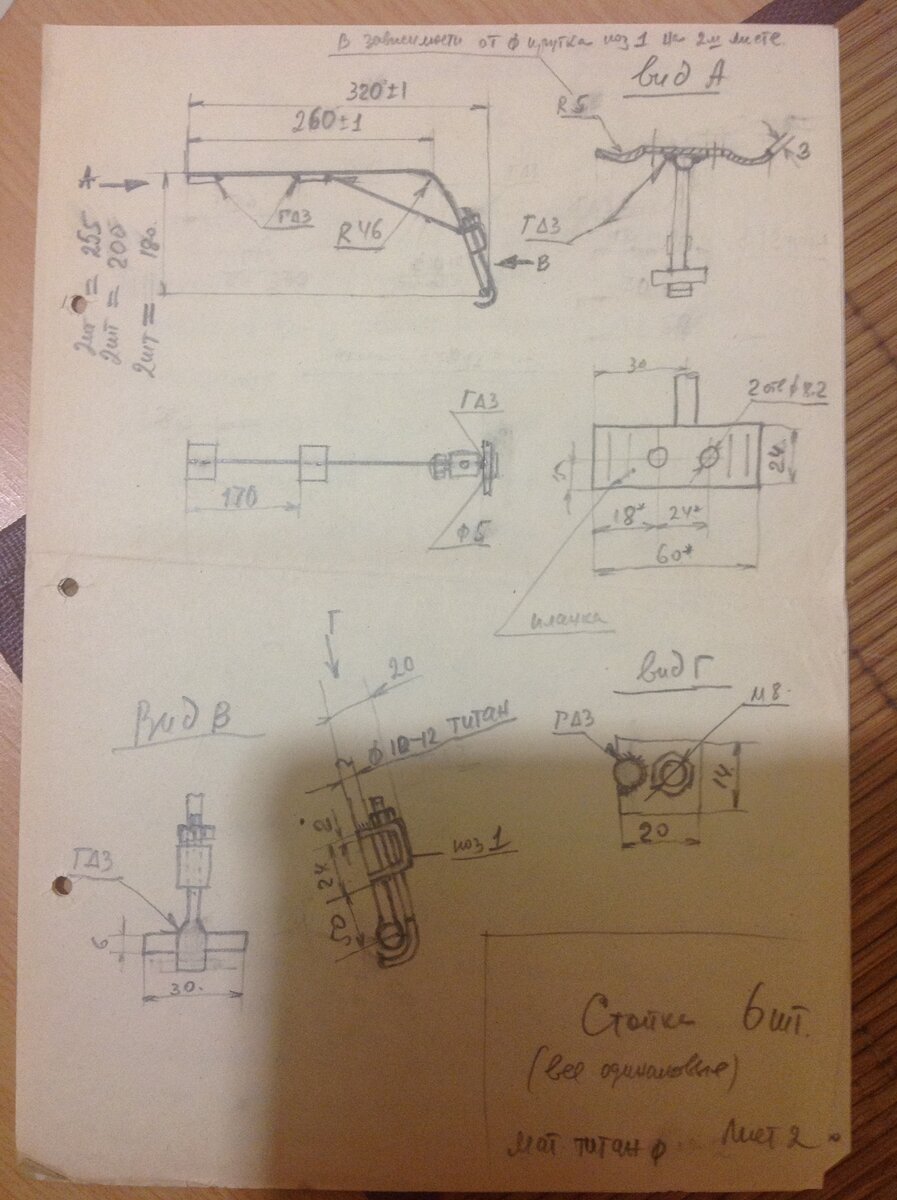 В зависимости от ф прутка поз 1 на 2м листе.
вид А
320±1
260±1
R5
3
А
ГДЗ
R46
ГДЗ
В
2шт = 255
2шт = 200
2шт = 180.
30
2 отв ф 8.2
ГДЗ
170
ф5
24
18*
24*
60*
планка
Г
20
вид Г
М8.
Вид В
ф 10-12 титан
ГДЗ
14
20
2
поз 1
24
50
ГДЗ
6
30.
Стойка 6шт.
(все одинаковые)
Мат. титан ф
Лист 2